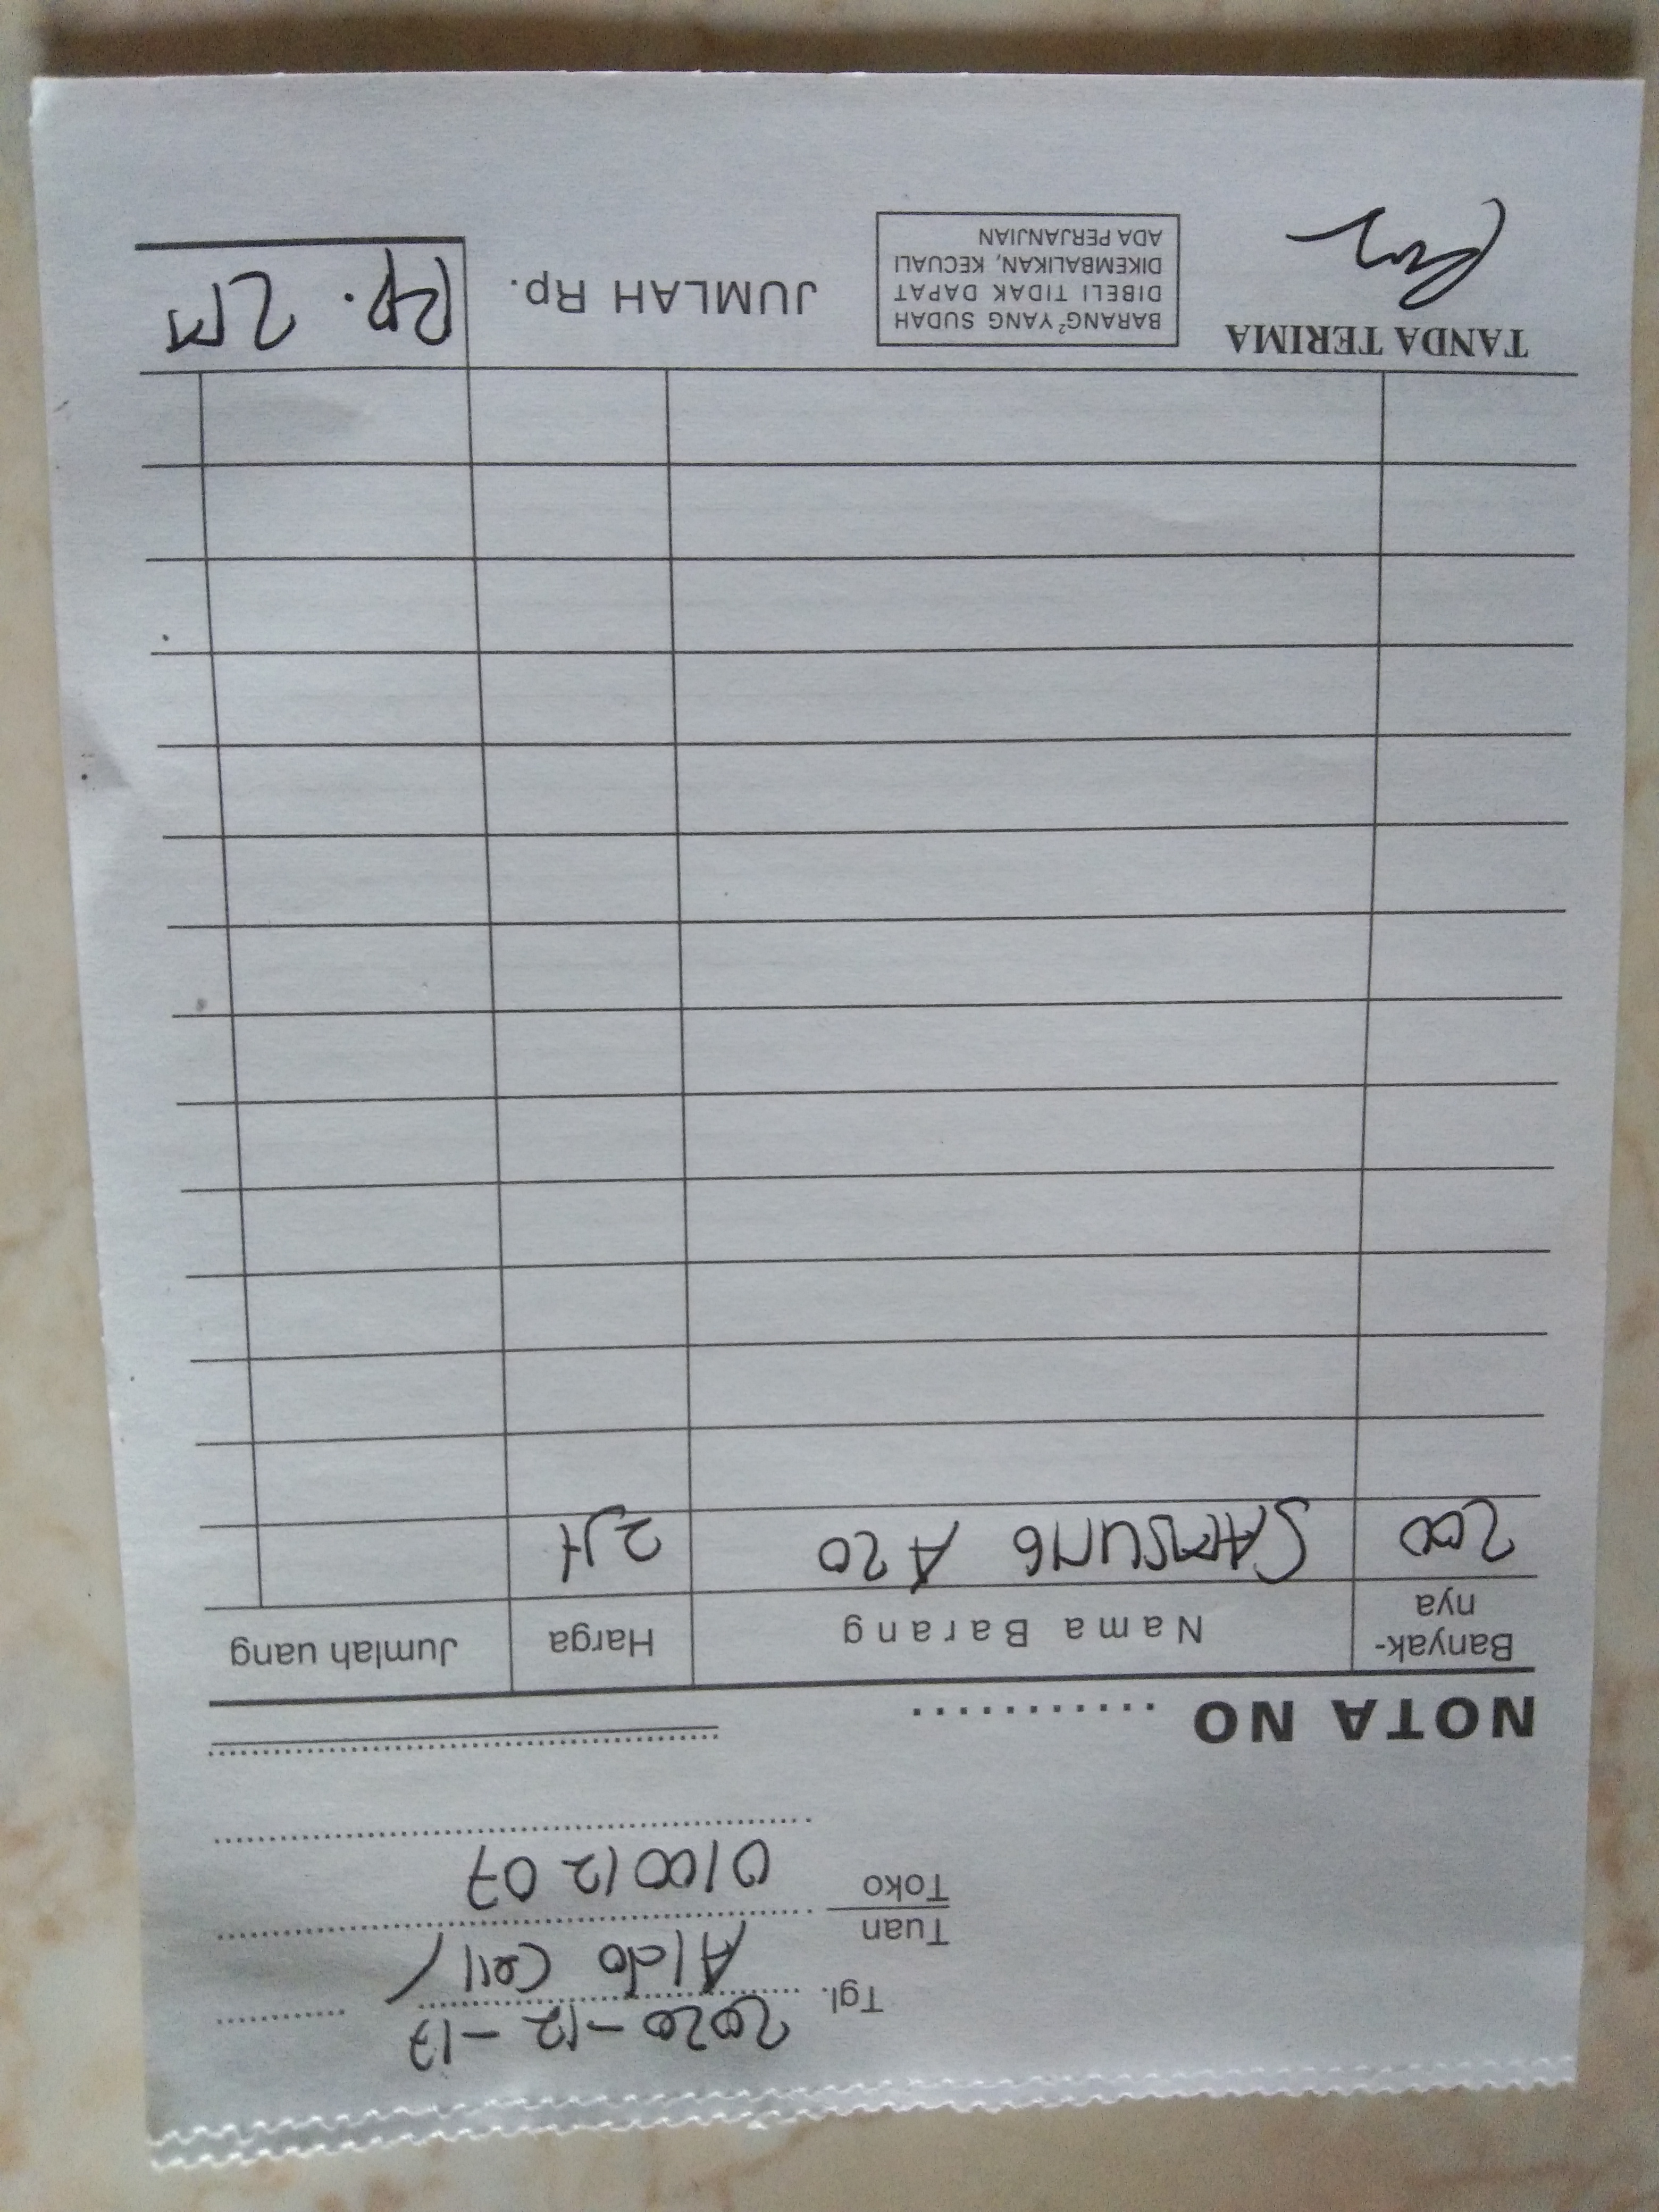 Tgl. 2020-12-17
Tuan Aldo Cell
Toko 01001207
NOTA NO ...........
Banyak-nya Nama Barang Harga Jumlah uang
200 SAMSUNG A20
TANDA TERIMA
BARANG² YANG SUDAH
DIBELI TIDAK DAPAT
DIKEMBALIKAN, KECUALI
ADA PERJANJIAN
JUMLAH Rp. Rp. 2M